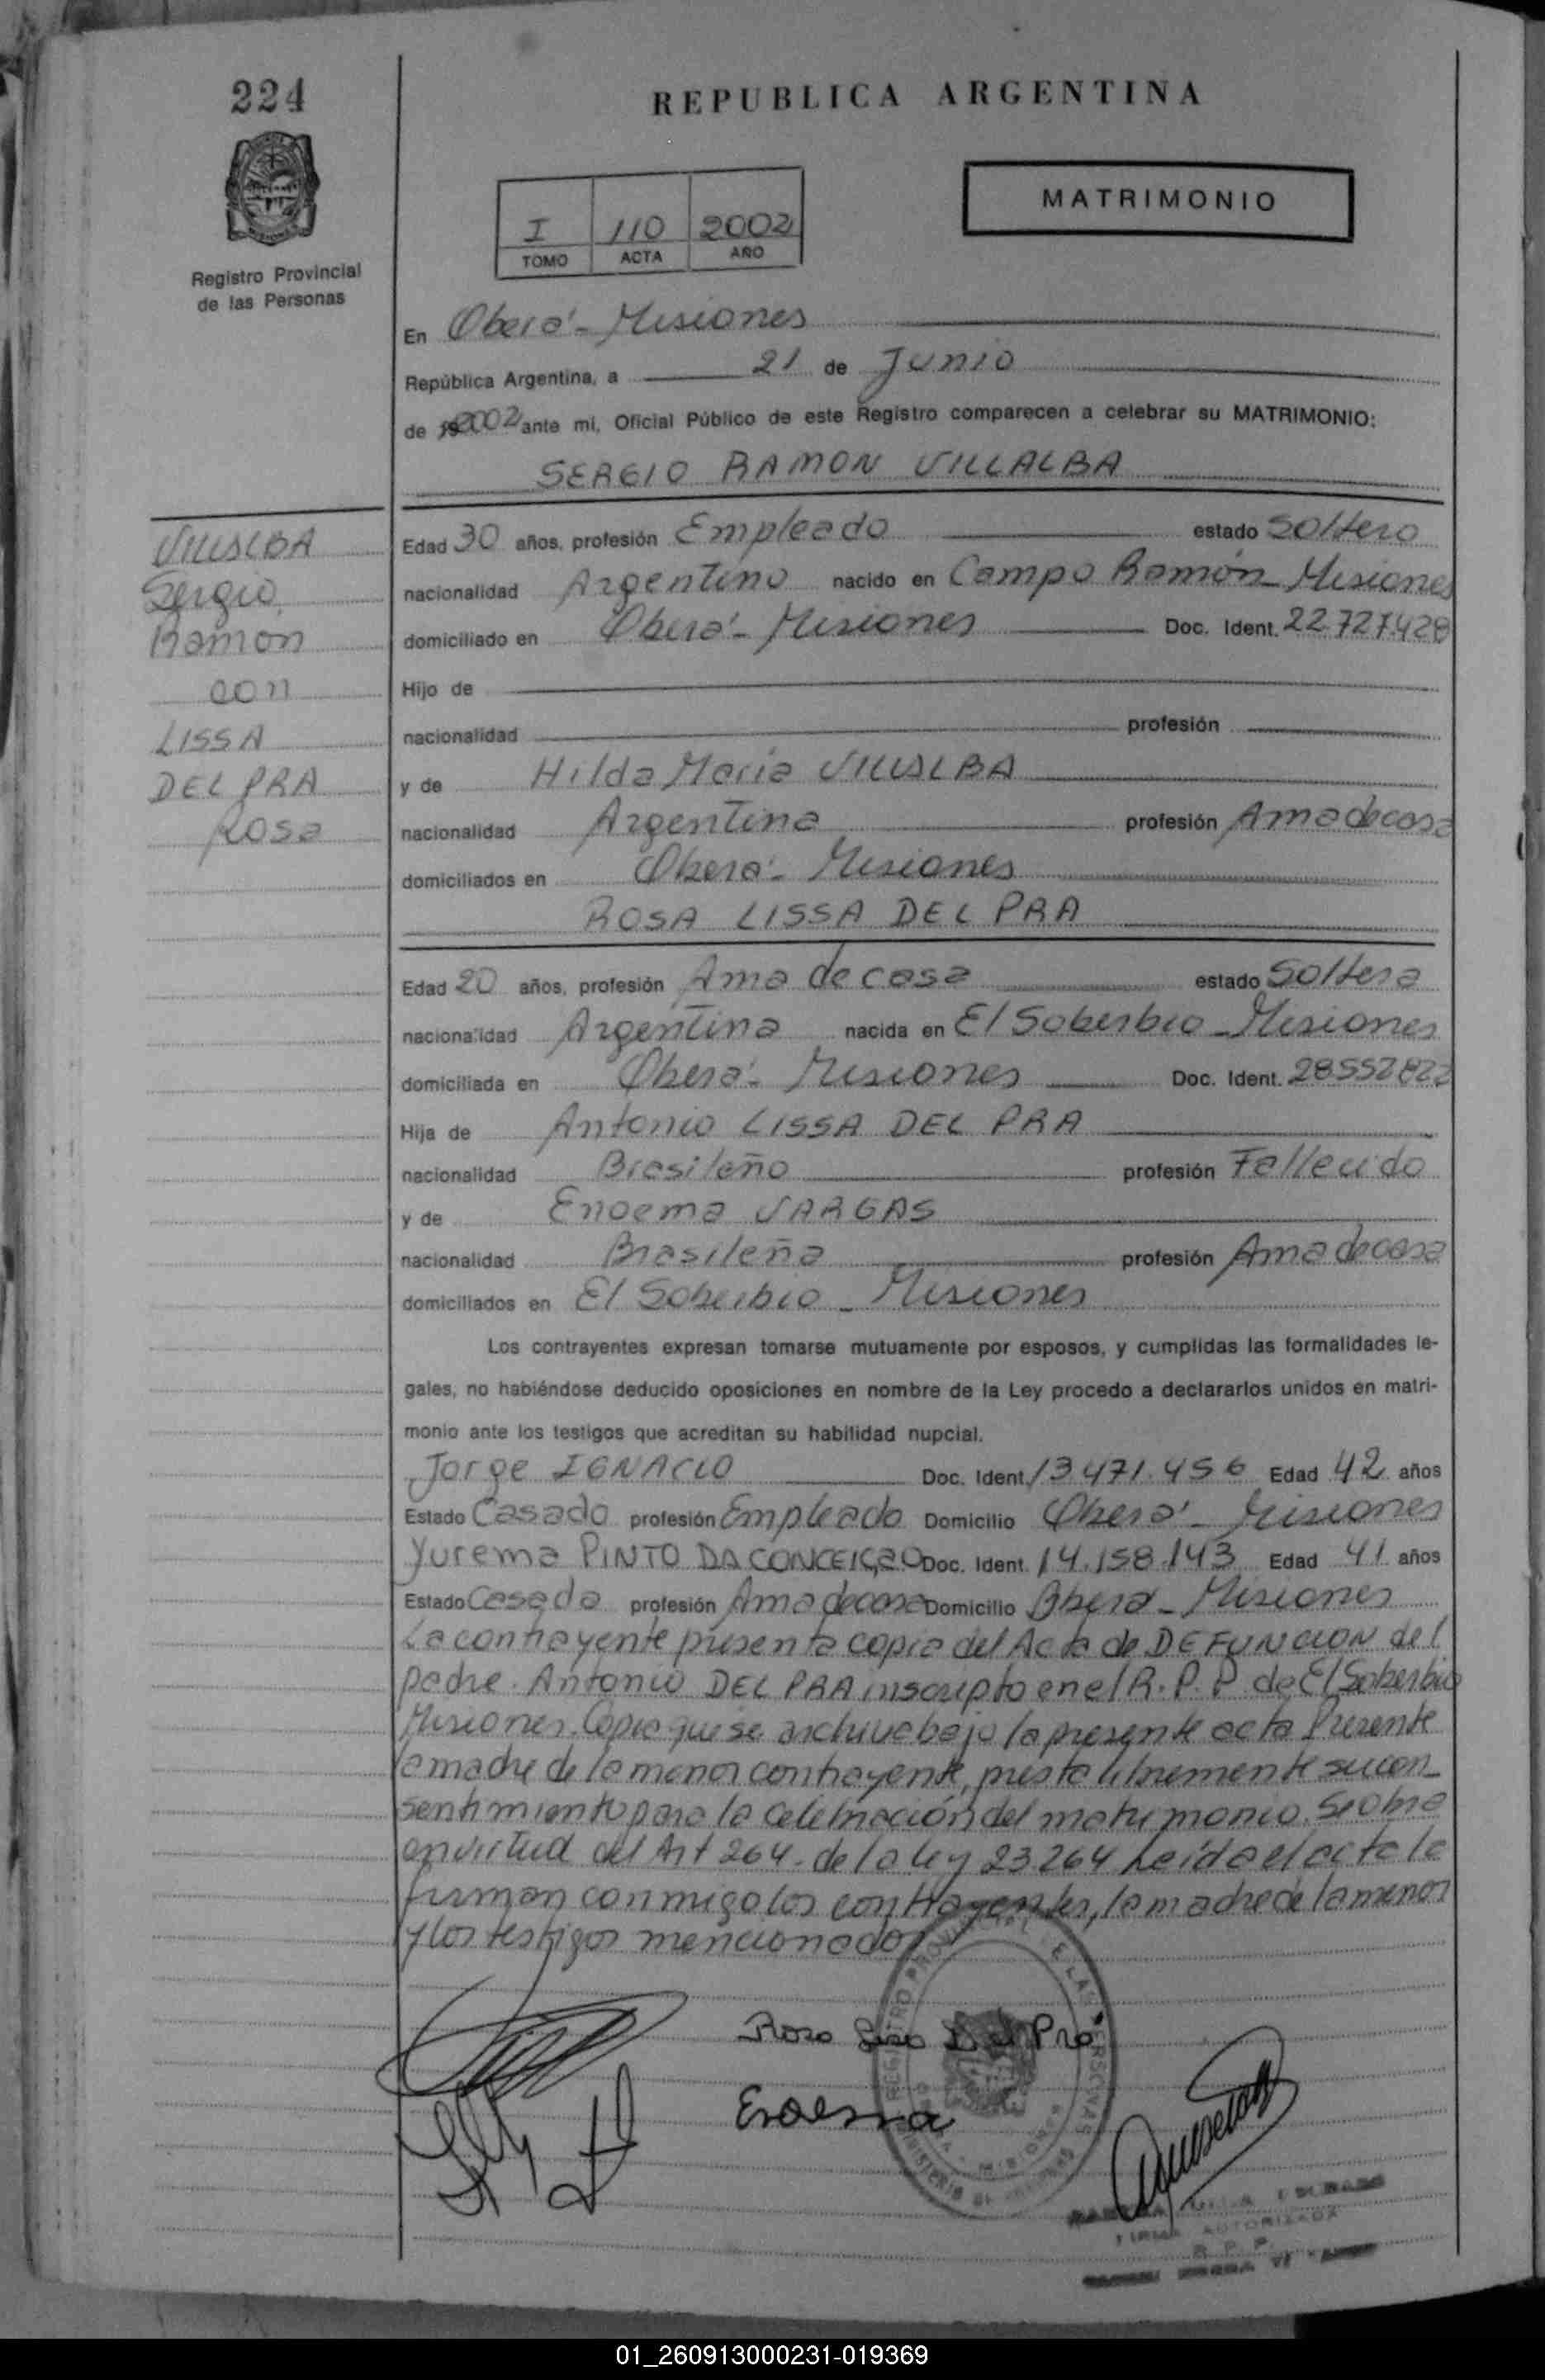 224
REPUBLICA ARGENTINA
Registro Provincial
de las Personas
I 110 2002
TOMO ACTA AÑO
MATRIMONIO
En Oberá - Misiones
República Argentina, a 21 de Junio
de 2002 ante mi, Oficial Público de este Registro comparecen a celebrar su MATRIMONIO:
SERGIO RAMON VILLALBA
VILLALBA
Sergio
Ramón
con
LISSA
DEL PRA
Rosa
Edad 30 años, profesión Empleado estado Soltero
nacionalidad Argentino nacido en Campo Ramón - Misiones
domiciliado en Oberá - Misiones Doc. Ident. 22.727.428
Hijo de
nacionalidad profesión
y de Hilda María VILLALBA
nacionalidad Argentina profesión Ama de casa
domiciliados en Oberá - Misiones
ROSA LISSA DEL PRA
Edad 20 años, profesión Ama de casa estado Soltera
nacionalidad Argentina nacida en El Soberbio - Misiones
domiciliada en Oberá - Misiones Doc. Ident.
Hija de Antonio LISSA DEL PRA
nacionalidad Brasileño profesión Fallecido
y de Enoema VARGAS
nacionalidad Brasileña profesión Ama de casa
domiciliados en El Soberbio - Misiones
Los contrayentes expresan tomarse mutuamente por esposos, y cumplidas las formalidades le-
gales, no habiéndose deducido oposiciones en nombre de la Ley procedo a declararlos unidos en matri-
monio ante los testigos que acreditan su habilidad nupcial.
Jorge IGNACIO Doc. Ident. 13.471.456 Edad 42 años
Estado Casado profesión Empleado Domicilio Oberá - Misiones
Yurema PINTO DA CONCEIÇAO Doc. Ident. 14.158.143 Edad 41 años
Estado Casada profesión Ama de casa Domicilio Oberá - Misiones
La contrayente presenta copia del Acta de DEFUNCION del
padre. Antonio DEL PRA inscripto en el R. P. P. de El Soberbio
Misiones. Copia que se archiva bajo la presente acta Presente
la madre de la menor contrayente, presta libremente su con-
sentimiento para la celebración del matrimonio. Se obra
en virtud del Art 264 - de la ley 23264 Leída el acta la
firman conmigo los contrayentes, la madre de la menor
y los testigos mencionados
Rosa Lisa Del Pra
Enoema
FIRMA AUTORIZADA
R. P. P.
01_260913000231-019369